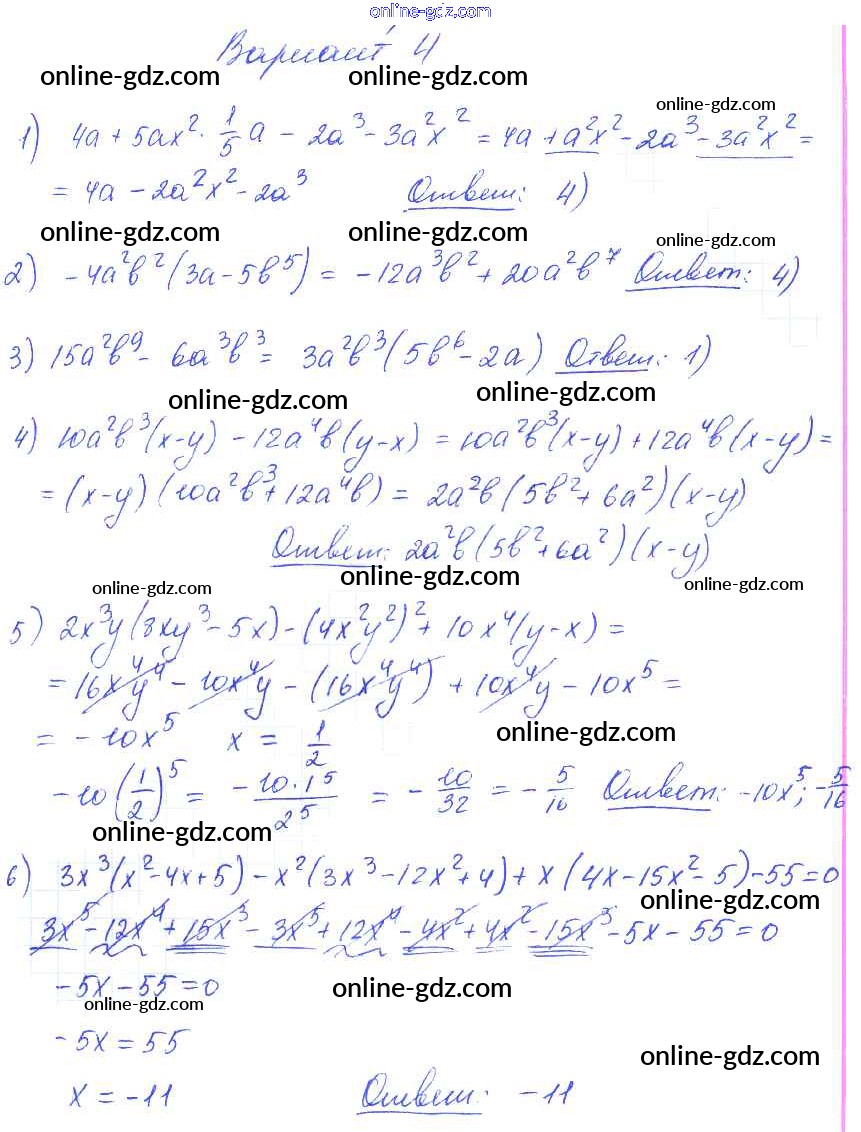 online-gdz.com
Вариант 4
online-gdz.com online-gdz.com
online-gdz.com
1) 4a + 5ax² · 1/5 a - 2a³ - 3a²x² = 4a + a²x² - 2a³ - 3a²x² =
= 4a - 2a²x² - 2a³ Ответ: 4)
online-gdz.com online-gdz.com online-gdz.com
2) -4a²b²(3a - 5b⁵) = -12a³b² + 20a²b⁷ Ответ: 4)
3) 15a²b⁹ - 6a³b³ = 3a²b³(5b⁶ - 2a) Ответ: 1)
online-gdz.com online-gdz.com
4) 10a²b³(x-y) - 12a⁴b(y-x) = 10a²b³(x-y) + 12a⁴b(x-y) =
= (x-y)(10a²b³ + 12a⁴b) = 2a²b(5b² + 6a²)(x-y)
Ответ: 2a²b(5b² + 6a²)(x-y)
online-gdz.com online-gdz.com online-gdz.com
5) 2x³y(8xy³ - 5x) - (4x²y²)² + 10x⁴(y-x) =
= 16x⁴y⁴ - 10x⁴y - (16x⁴y⁴) + 10x⁴y - 10x⁵ =
= -10x⁵ x = 1/2
online-gdz.com
-10(1/2)⁵ = -10·1⁵/2⁵ = -10/32 = -5/16 Ответ: -10x⁵; -5/16
online-gdz.com
6) 3x³(x² - 4x + 5) - x²(3x³ - 12x² + 4) + x(4x - 15x² - 5) - 55 = 0
online-gdz.com
3x⁵ - 12x⁴ + 15x³ - 3x⁵ + 12x⁴ - 4x² + 4x² - 15x³ - 5x - 55 = 0
-5x - 55 = 0
online-gdz.com online-gdz.com
-5x = 55
online-gdz.com
x = -11 Ответ: -11